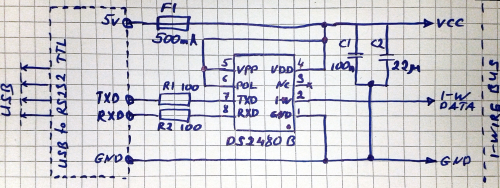 F1
5V
VCC
500mA
C1
C2
100n
22µ
5
VPP
VDD
4
6
POL
NC
3
TXD
R1 100
7
TXD
1-W
2
1-W
DATA
RXD
R2 100
8
RXD
GND
1
DS2480B
GND
GND
USB
USB to RS232 TTL
1-WIRE BUS